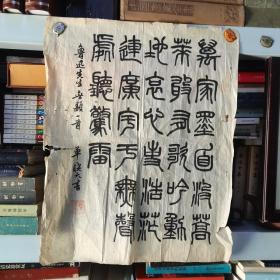 萬家墨面没蒿
萊敢有歌吟動
地哀心事浩茫
連廣宇于無聲
處聽驚雷
魯迅先生無題一首